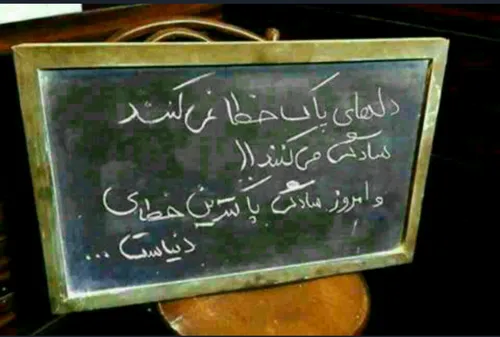 دلهای پاک خطا نمی کنند
سادگی می کنند!!
و امروز سادگی پاکترین خطای
دنیاست ...